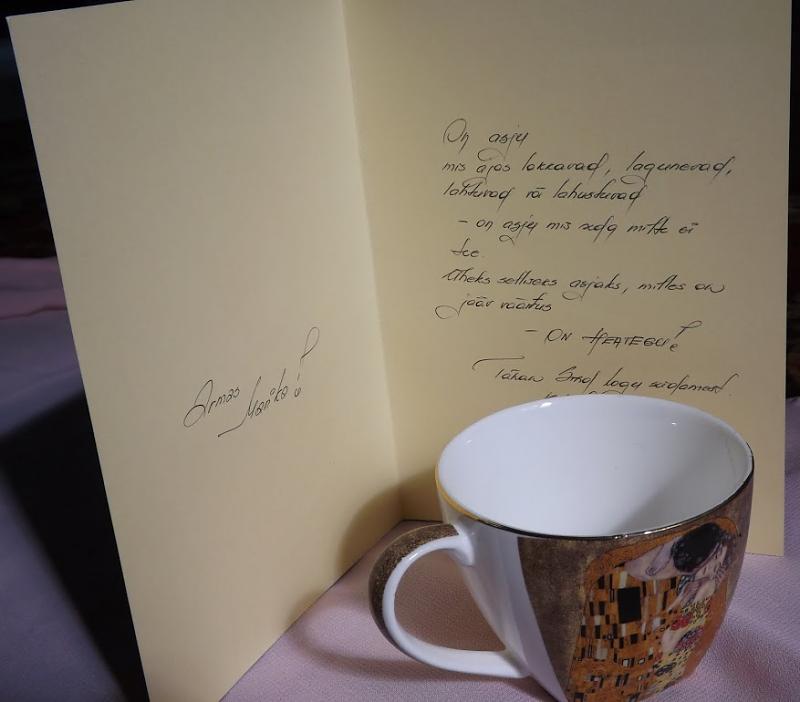 Armas
Marika!
On asju
mis ajas lakkavad, lagunevad,
lahtuvad või lahustuvad
- on asju mis seda mitte ei
tee.
Üheks selliseks asjaks, milles on
jääv väärtus
- ON HEATEGU!
Tänan Sind kogu südamest.